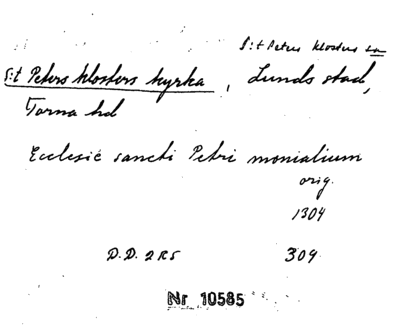 S:t Petrus klosters sn
S:t Peters klosters kyrka, Lunds stad,
Torna hd
Ecclesie sancti Petri monialium
orig.
1304
D.D. 2 R5 309
Nr 10585